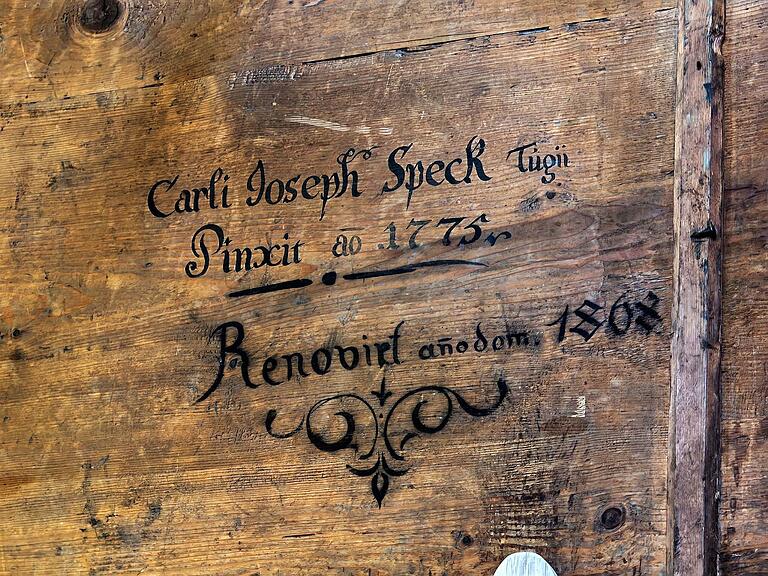 Carli Joseph Speck Tugii
Pinxit ao 1775.
Renovirt añodom. 1868